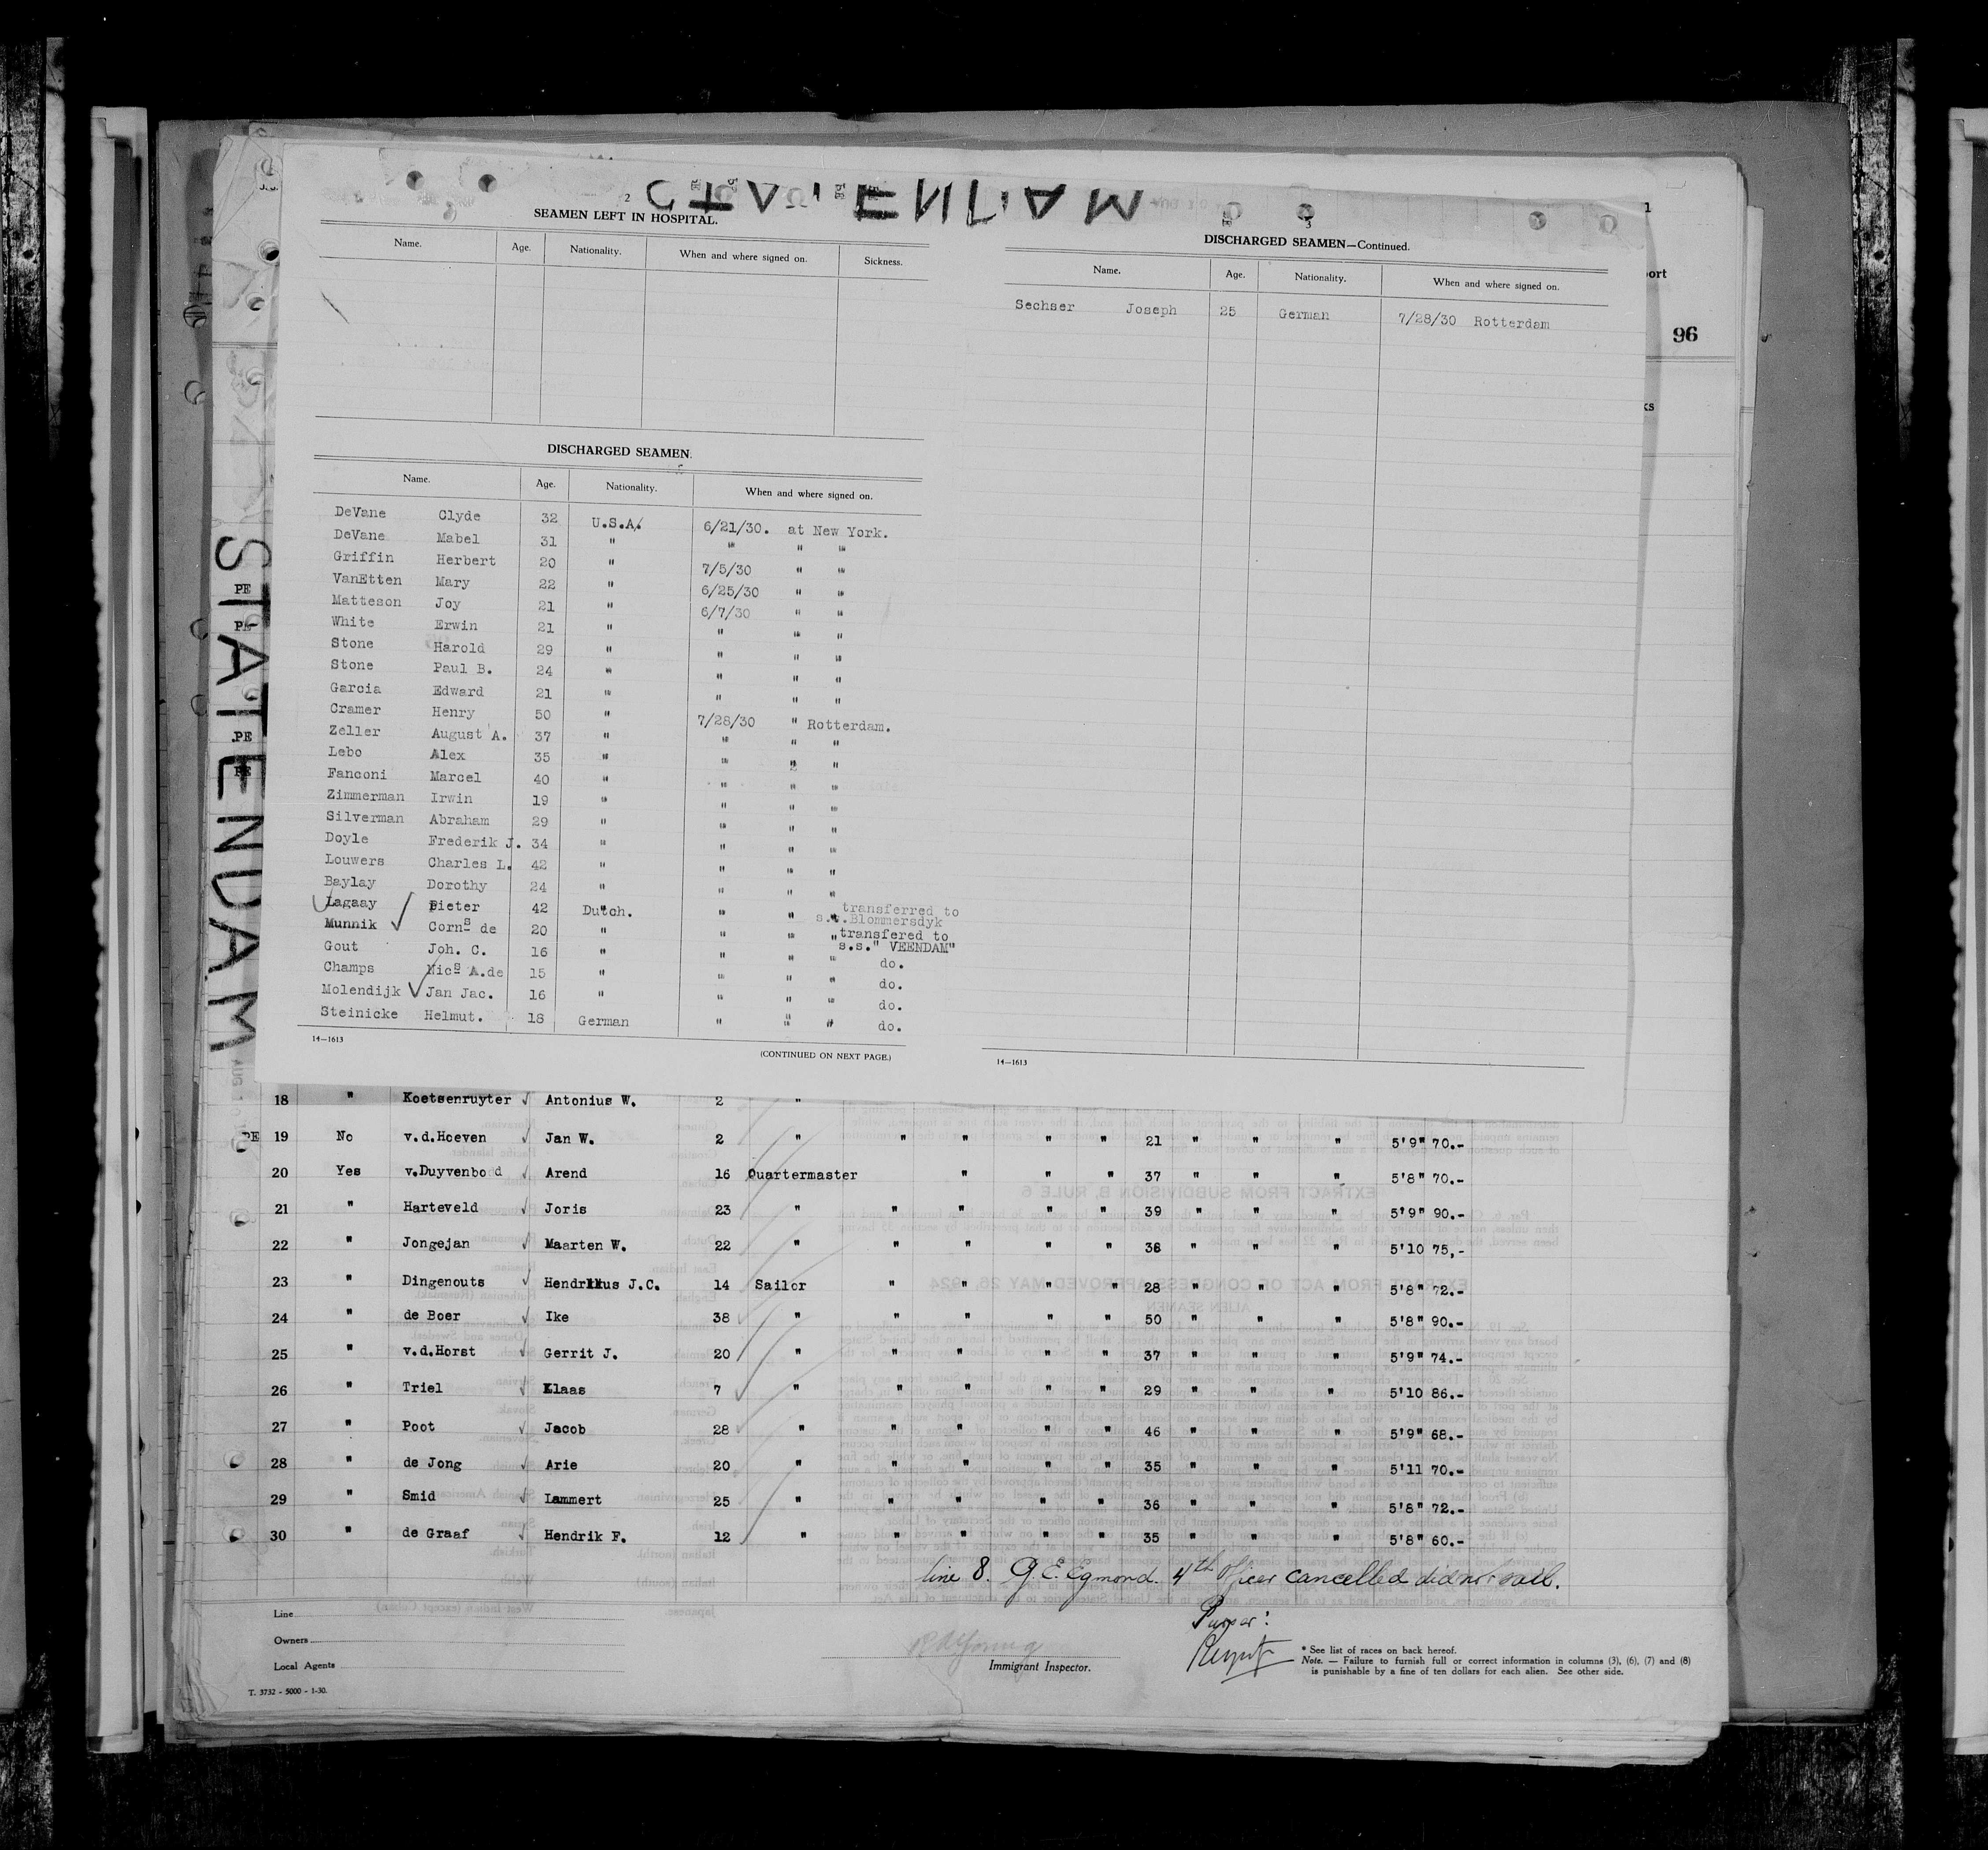 STATENDAM
2
SEAMEN LEFT IN HOSPITAL.
Name. Age. Nationality. When and where signed on. Sickness.
DISCHARGED SEAMEN.
Name. Age. Nationality. When and where signed on.
DeVane Clyde 32 U.S.A. 6/21/30. at New York.
DeVane Mabel 31 " " " "
Griffin Herbert 20 " 7/5/30 " "
VanEtten Mary 22 " 6/25/30 " "
Matteson Joy 21 " 6/7/30 " "
White Erwin 21 " " " "
Stone Harold 29 " " " "
Stone Paul B. 24 " " " "
Garcia Edward 21 " " " "
Cramer Henry 50 " 7/28/30 " Rotterdam.
Zeller August A. 37 " " " "
Lebo Alex 35 " " " "
Fanconi Marcel 40 " " " "
Zimmerman Irwin 19 " " " "
Silverman Abraham 29 " " " "
Doyle Frederik J. 34 " " " "
Louwers Charles L. 42 " " " "
Baylay Dorothy 24 " " " "
Lagaay Pieter 42 Dutch. " " " transferred to s.s.Blommersdyk
Munnik Corns de 20 " " " " transfered to s.s." VEENDAM"
Gout Joh. C. 16 " " " " do.
Champs Nics A.de 15 " " " " do.
Molendijk Jan Jac. 16 " " " " do.
Steinicke Helmut. 18 German " " " do.
14—1613
(CONTINUED ON NEXT PAGE.)
3
DISCHARGED SEAMEN—Continued.
Name. Age. Nationality. When and where signed on.
Sechser Joseph 25 German 7/28/30 Rotterdam
14—1613
1
ort
96
ks
STATENDAM
PE
PE
PE
PE
18 " Koetsenruyter Antonius W. 2 "
PE 19 No v.d.Hoeven Jan W. 2 " " " " " 21 " " " 5'9" 70.-
20 Yes v.Duyvenbodd Arend 16 Quartermaster " " " 37 " " " 5'8" 70.-
21 " Harteveld Joris 23 " " " " " 39 " " " 5'9" 90.-
22 " Jongejan Maarten W. 22 " " " " " 36 " " " 5'10 75,-
23 " Dingenouts Hendrikus J.C. 14 Sailor " " " " 28 " " " 5'8" 72.-
24 " de Boer Ike 38 " " " " " 50 " " " 5'8" 90.-
25 " v.d.Horst Gerrit J. 20 " " " " " 37 " " " 5'9" 74.-
26 " Triel Klaas 7 " " " " " 29 " " " 5'10 86.-
27 " Poot Jacob 28 " " " " " 46 " " " 5'9" 68.-
28 " de Jong Arie 20 " " " " " 35 " " " 5'11 70.-
29 " Smid Lammert 25 " " " " " 36 " " " 5'8" 72.-
30 " de Graaf Hendrik F. 12 " " " " " 35 " " " 5'8" 60.-
line 8. G.E. Egmond. 4th Officer cancelled did not sail.
Purser:
Line
Owners
Local Agents
Immigrant Inspector.
* See list of races on back hereof.
Note. — Failure to furnish full or correct information in columns (3), (6), (7) and (8)
is punishable by a fine of ten dollars for each alien. See other side.
T. 3732 - 5000 - 1-30.